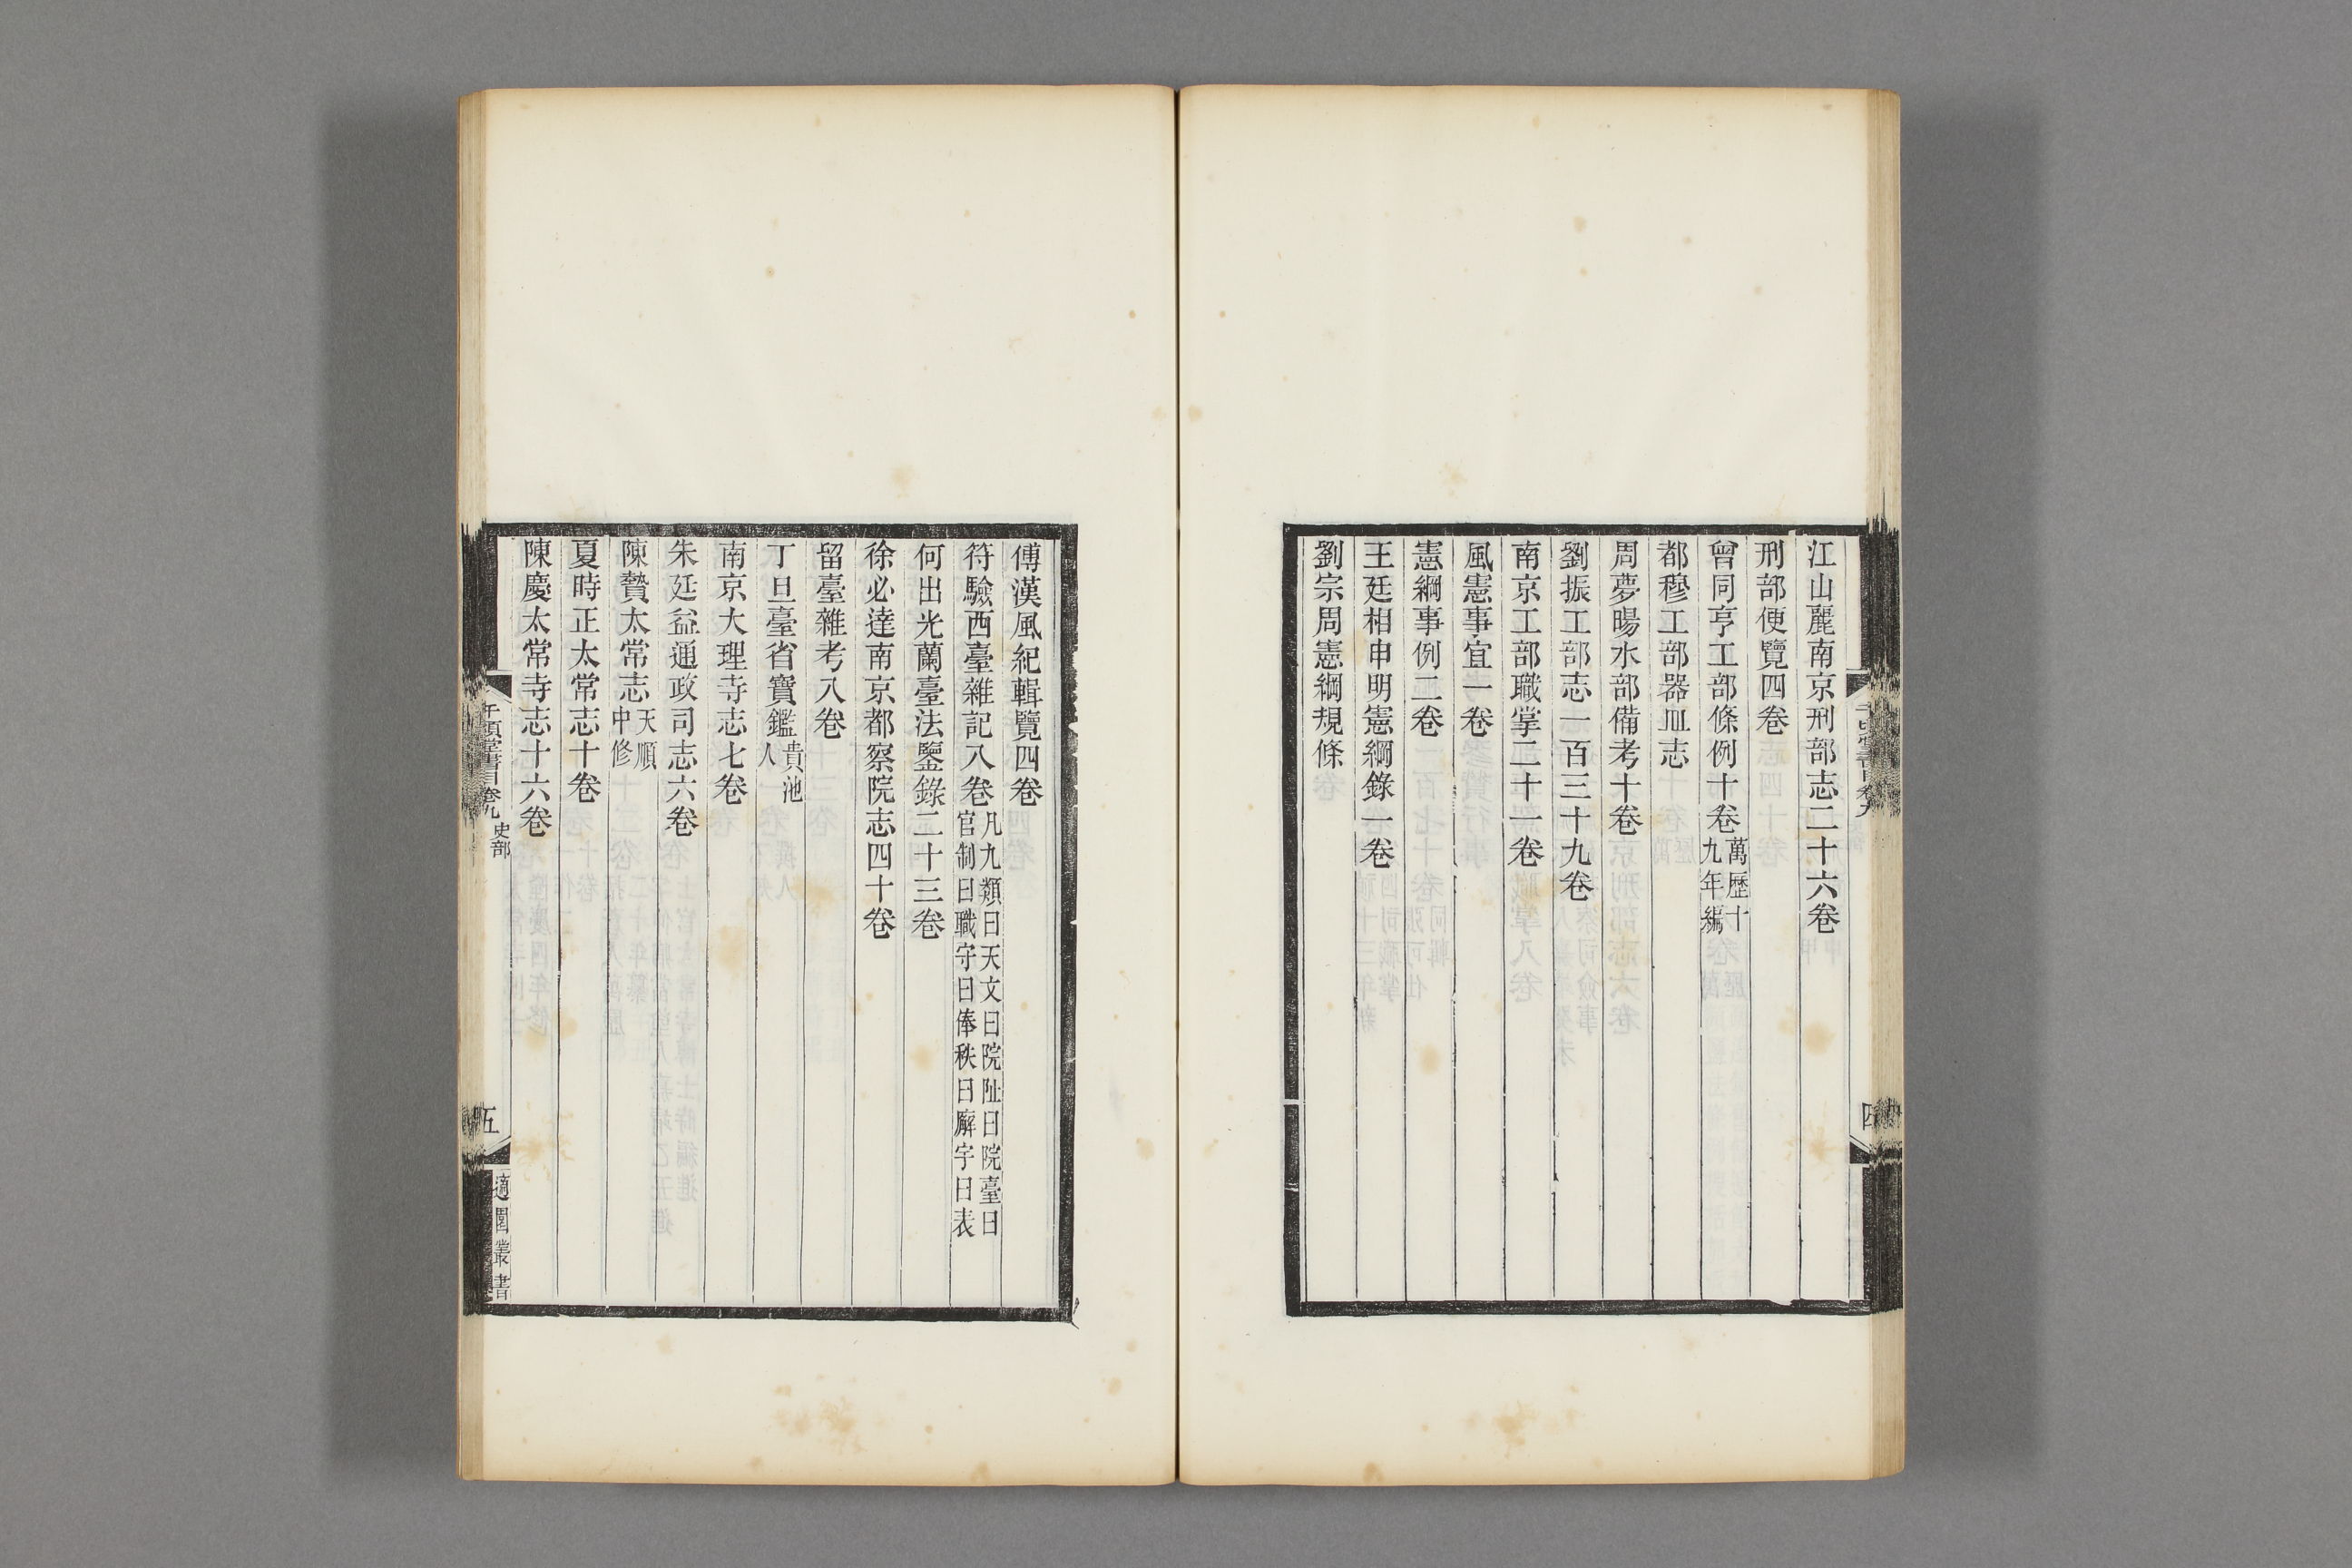 江山麗南京刑部志二十六卷
刑部便覽四卷
曾同亨工部條例十卷萬歷十九年編
都穆工部器皿志
周夢暘水部備考十卷
劉振工部志一百三十九卷
南京工部職掌二十一卷
風憲事宜一卷
憲綱事例二卷
王廷相申明憲綱錄一卷
劉宗周憲綱規條
傅漢風紀輯覽四卷
符驗西臺雜記八卷凡九類曰天文曰院址曰院臺曰官制曰職守曰俸秩曰廨宇曰表
何出光蘭臺法鑒錄二十三卷
徐必達南京都察院志四十卷
留臺雜考八卷
丁旦臺省寶鑑貴池人
南京大理寺志七卷
朱廷益通政司志六卷
陳贄太常志天順中修
夏時正太常志十卷
陳慶太常寺志十六卷
千頃堂書目卷九 史部
五
適園叢書